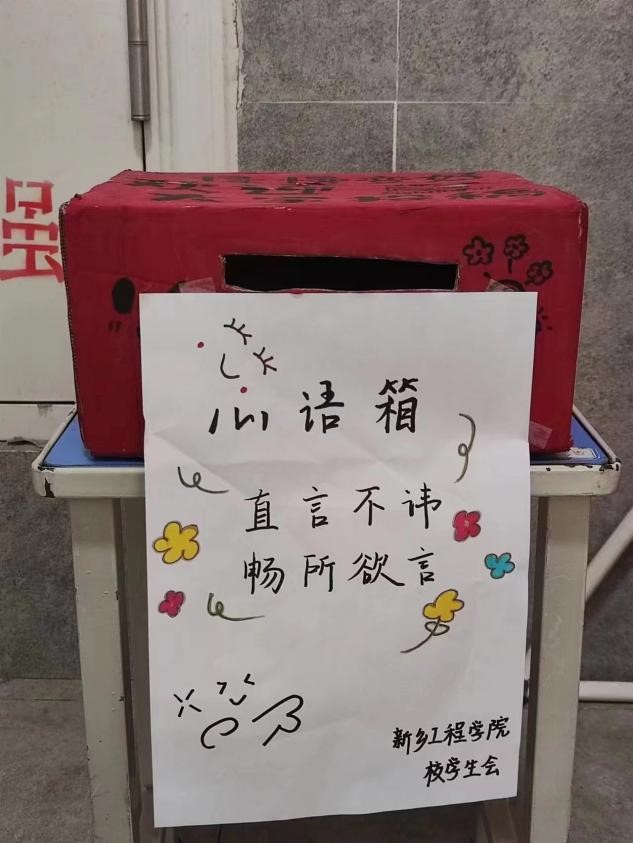 心语箱
直言不讳
畅所欲言
新乡工程学院
校学生会